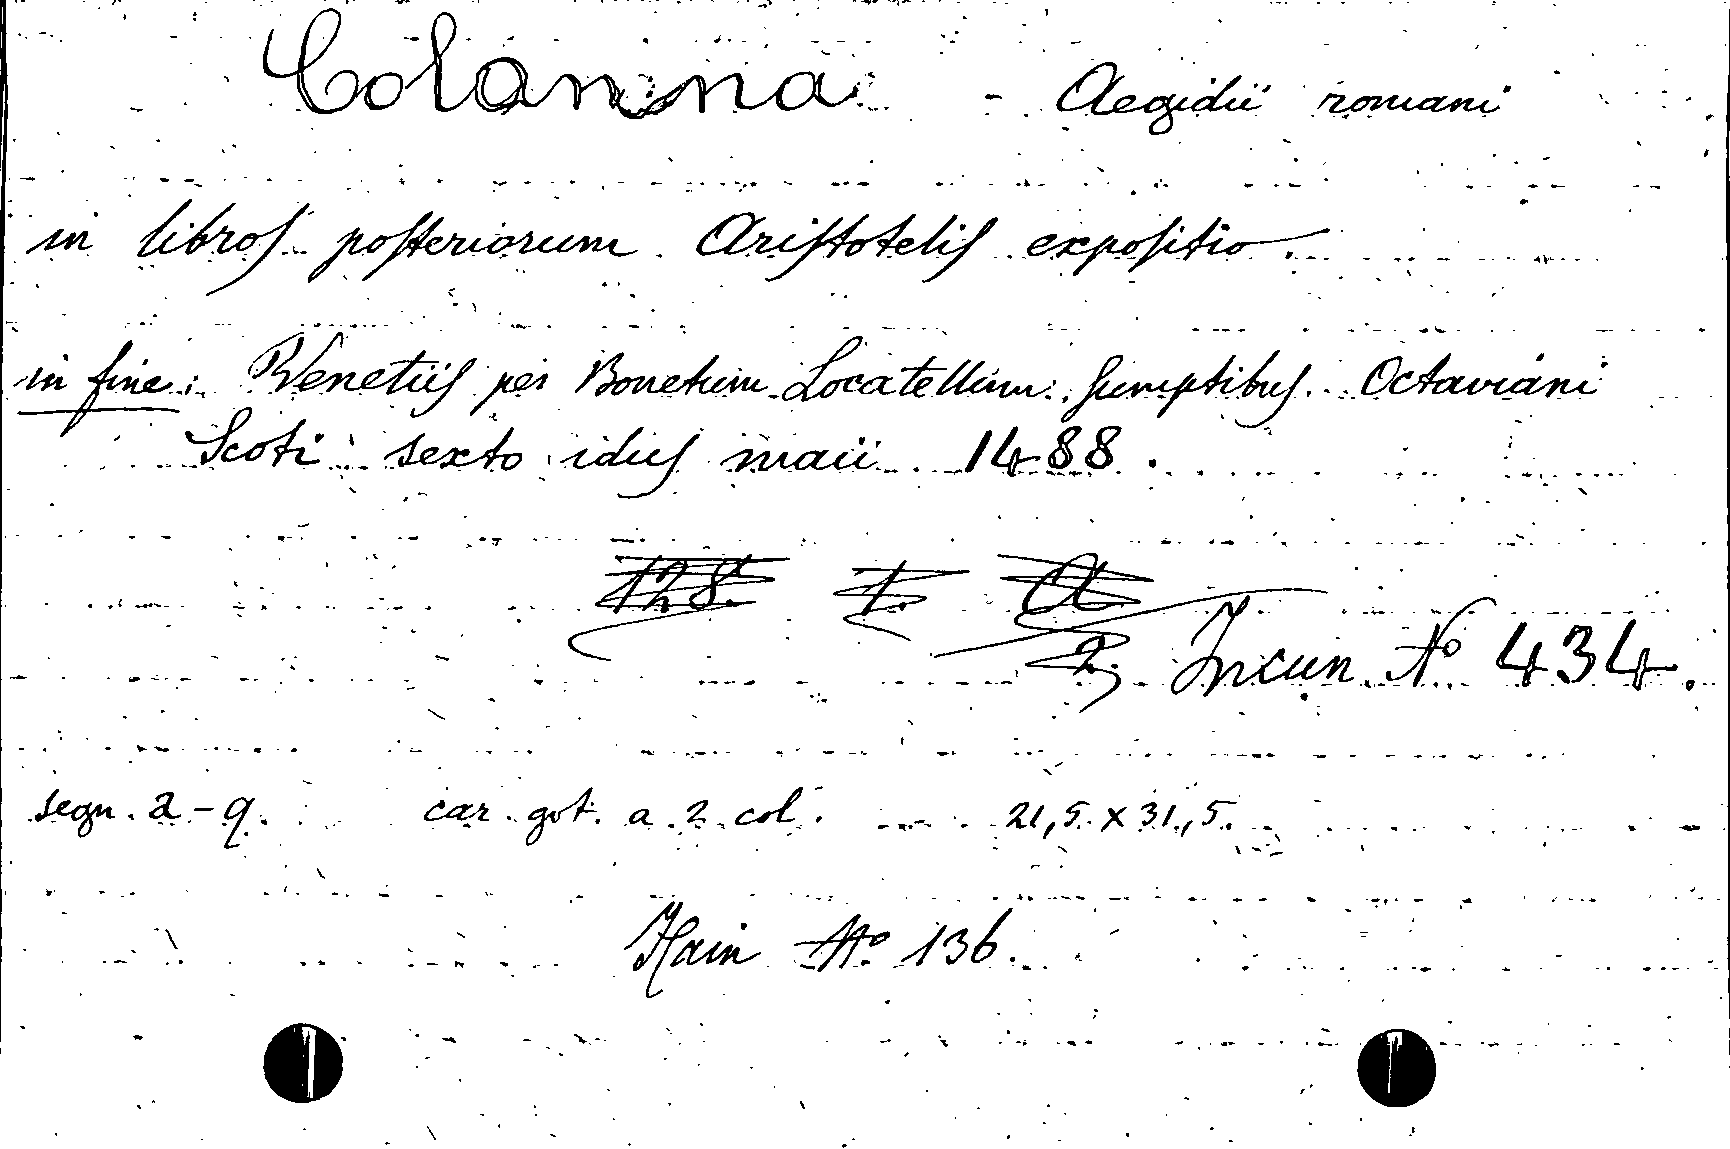 Colonna - Aegidii romani
in libros posteriorum Aristotelis expositio.
in fine: Venetiis per Bonetum Locatellum: sumptibus Octaviani
Scoti sexto idus maii 1488.
128. 1. A
2. Incun. No 434.
segn. a-q. car. got. a 2 col. 21,5 x 31,5.
Hain No 136.